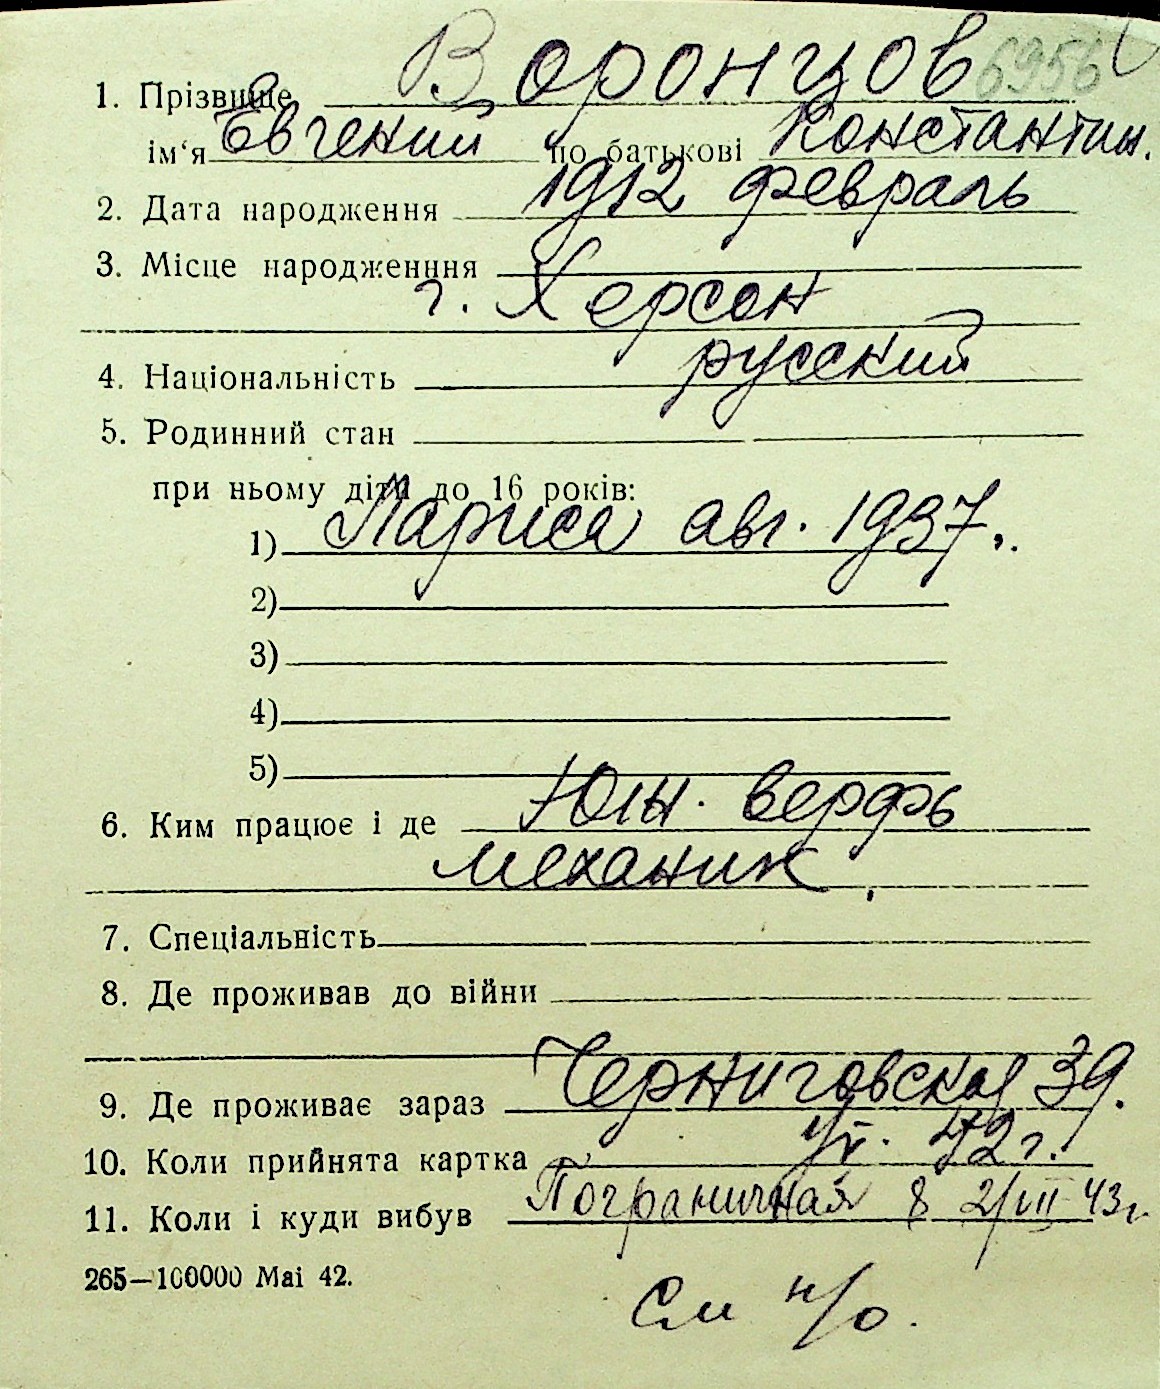 6956
1. Прізвище Воронцов
ім‘я Евгений по батькові Константин.
2. Дата народження 1912 февраль
3. Місце народженння
г. Херсон
4. Національність русский
5. Родинний стан
при ньому діти до 16 років:
1) Лариса авг. 1937.
2)
3)
4)
5)
6. Ким працює і де Южн. верфь
механик.
7. Спеціальність
8. Де проживав до війни
9. Де проживає зараз Черниговская 39.
10. Коли прийнята картка 42 г.
11. Коли і куди вибув Пограничная 8 2/VIII 43 г.
265—100000 Mai 42.
См н/о.